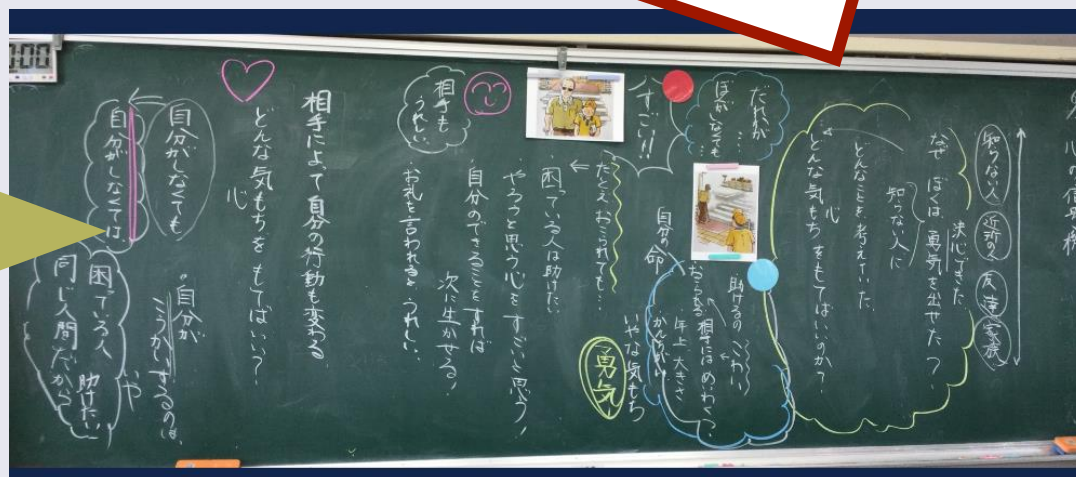 心の信号機
知らない人
近所の人
友達
家族
決心できた
なぜ ぼくは 勇気を出せた?
知らない人に
どんなことを考えていた。
心
どんな気もちをもてばいいのか?
だれかが…
ぼくがいなくても…
助けるの こわい
おこられる 相手には めいわく?
年上 大きさ
かんちがい
いやな気もち
自分の命
すごい!!
勇気
たとえ おこられても…
困っている人は助けたい。
やろうと思う心をすごいと思う!
自分のできることをすれば
次に生かせる!
お礼を言われると うれしい。
相手も
うれしい。
相手によって自分の行動も変わる
どんな気もちを もてばいい?
心
自分がしなくても
自分がしなくては。
自分が
こうかいするのは、
いや
困っている人
助けたい
同じ人間だから
0:00